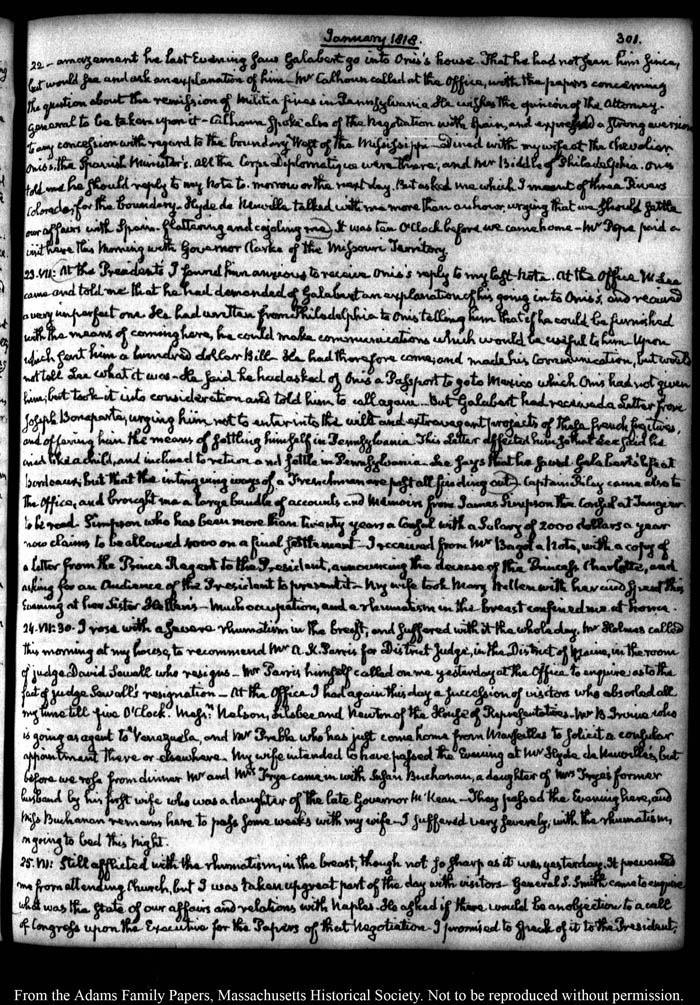 January 1818.
301.
22 – amazement he last Evening saw Galabert go into Onis's house. That he had not seen him since,
but would see and ask an explanation of him – Mr Calhoun called at the Office, with the papers concerning
the question about the remission of Militia fines in Pennsylvania. He wishes the opinion of the Attorney-
General to be taken upon it – Calhoun spoke also of the Negotiation with Spain, and expressed a strong aversion
to any concession with regard to the boundary West of the Mississippi – Dined with my wife at the Chevalier
Onis's, the Spanish Minister's. All the Corps Diplomatique were there; and Mr Biddle of Philadelphia. Onis
told me he should reply to my Note to-morrow or the next day. But asked me which I meant of three Rivers
Colorado, for the boundary – Hyde de Neuville talked with me more than an hour, urging that we should settle
our affairs with Spain. Flattering and cajoling me) It was ten O'Clock before we came home – Mr Pope paid a
visit here this Morning with Governor Clarke of the Missouri Territory
23. VII: At the President's I found him anxious to receive Onis's reply to my last Note. At the Office W. Lee
came and told me that he had demanded of Galabert an explanation of his going in to Onis's, and received
a very imperfect one. He had written from Philadelphia to Onis telling him that if he could be furnished
with the means of coming here, he could make communications which would be useful to him. Upon
which sent him a hundred dollar Bill – He had therefore come, and made his Communication, but would
not tell Lee what it was – He said he had asked of Onis a Passport to go to Mexico which Onis had not given
him; but took it into consideration and told him to call again. But Galabert had received a Letter from
Joseph Bonaparte, urging him not to enter into the wild and extravagant projects of these French fugitives,
and offering him the means of settling himself in Pennsylvania. This Letter affected him so that Lee said he
cried like a child, and inclined to return and settle in Pennsylvania. Lee says that he saved Galabert's life at
Bordeaux; but that the intriguing ways of a Frenchman are past all finding out) Captain Riley came also to
the Office, and brought me a large bundle of accounts and Memoirs from James Simpson the Consul at Tangier
to be read. Simpson who has been more than twenty years a Consul with a Salary of 2000 dollars a year
now claims to be allowed 4000 on a final settlement – I received from Mr Bagot a Note, with a copy of
a Letter from the Prince Regent to the President, announcing the decease of the Princess Charlotte, and
asking for an Audience of the President to present it – My wife took Mary Hellen with her and spent this
Evening at her Sister – Much occupation, and a rheumatism in the breast confined me at home.
24. VII: 30. I rose with a severe rheumatism in the breast, and suffered with it the whole day. Mr Holmes called
this morning at my house, to recommend Mr A. K. Parris for District Judge, in the District of Maine, in the room
of judge David Sewall who resigns – Mr Parris himself called on me yesterday at the Office to enquire as to the
fact of judge Sewall's resignation – At the Office I had again this day a succession of visitors who absorbed all
my time till five O'Clock. Messrs Nelson, Silsbee and Newton of the House of Representatives – Mr B. Irvine who
is going as agent to Venezuela, and Mr Preble who has just come home from Marseilles to solicit a consular
appointment there or elsewhere. My wife intended to have passed the Evening at Mr Hyde de Neuville's, but
before we rose from dinner Mr and Mrs Frye came in with Susan Buchanan, a daughter of Mrs Frye's former
husband by his first wife who was a daughter of the late Governor M'Kean – They passed the Evening here, and
Miss Buchanan remains here to pass some weeks with my wife – I suffered very severely, with the rheumatism,
in going to bed this Night.
25. VII: Still afflicted with the rheumatism, in the breast, though not so sharp as it was yesterday. It prevented
me from attending Church, but I was taken up great part of the day with visitors – General S. Smith came to enquire
what was the State of our affairs and relations with Naples. He asked if there would be an objection to a call
of Congress upon the Executive for the Papers of that Negotiation – I promised to speak of it to the President;
From the Adams Family Papers, Massachusetts Historical Society. Not to be reproduced without permission.